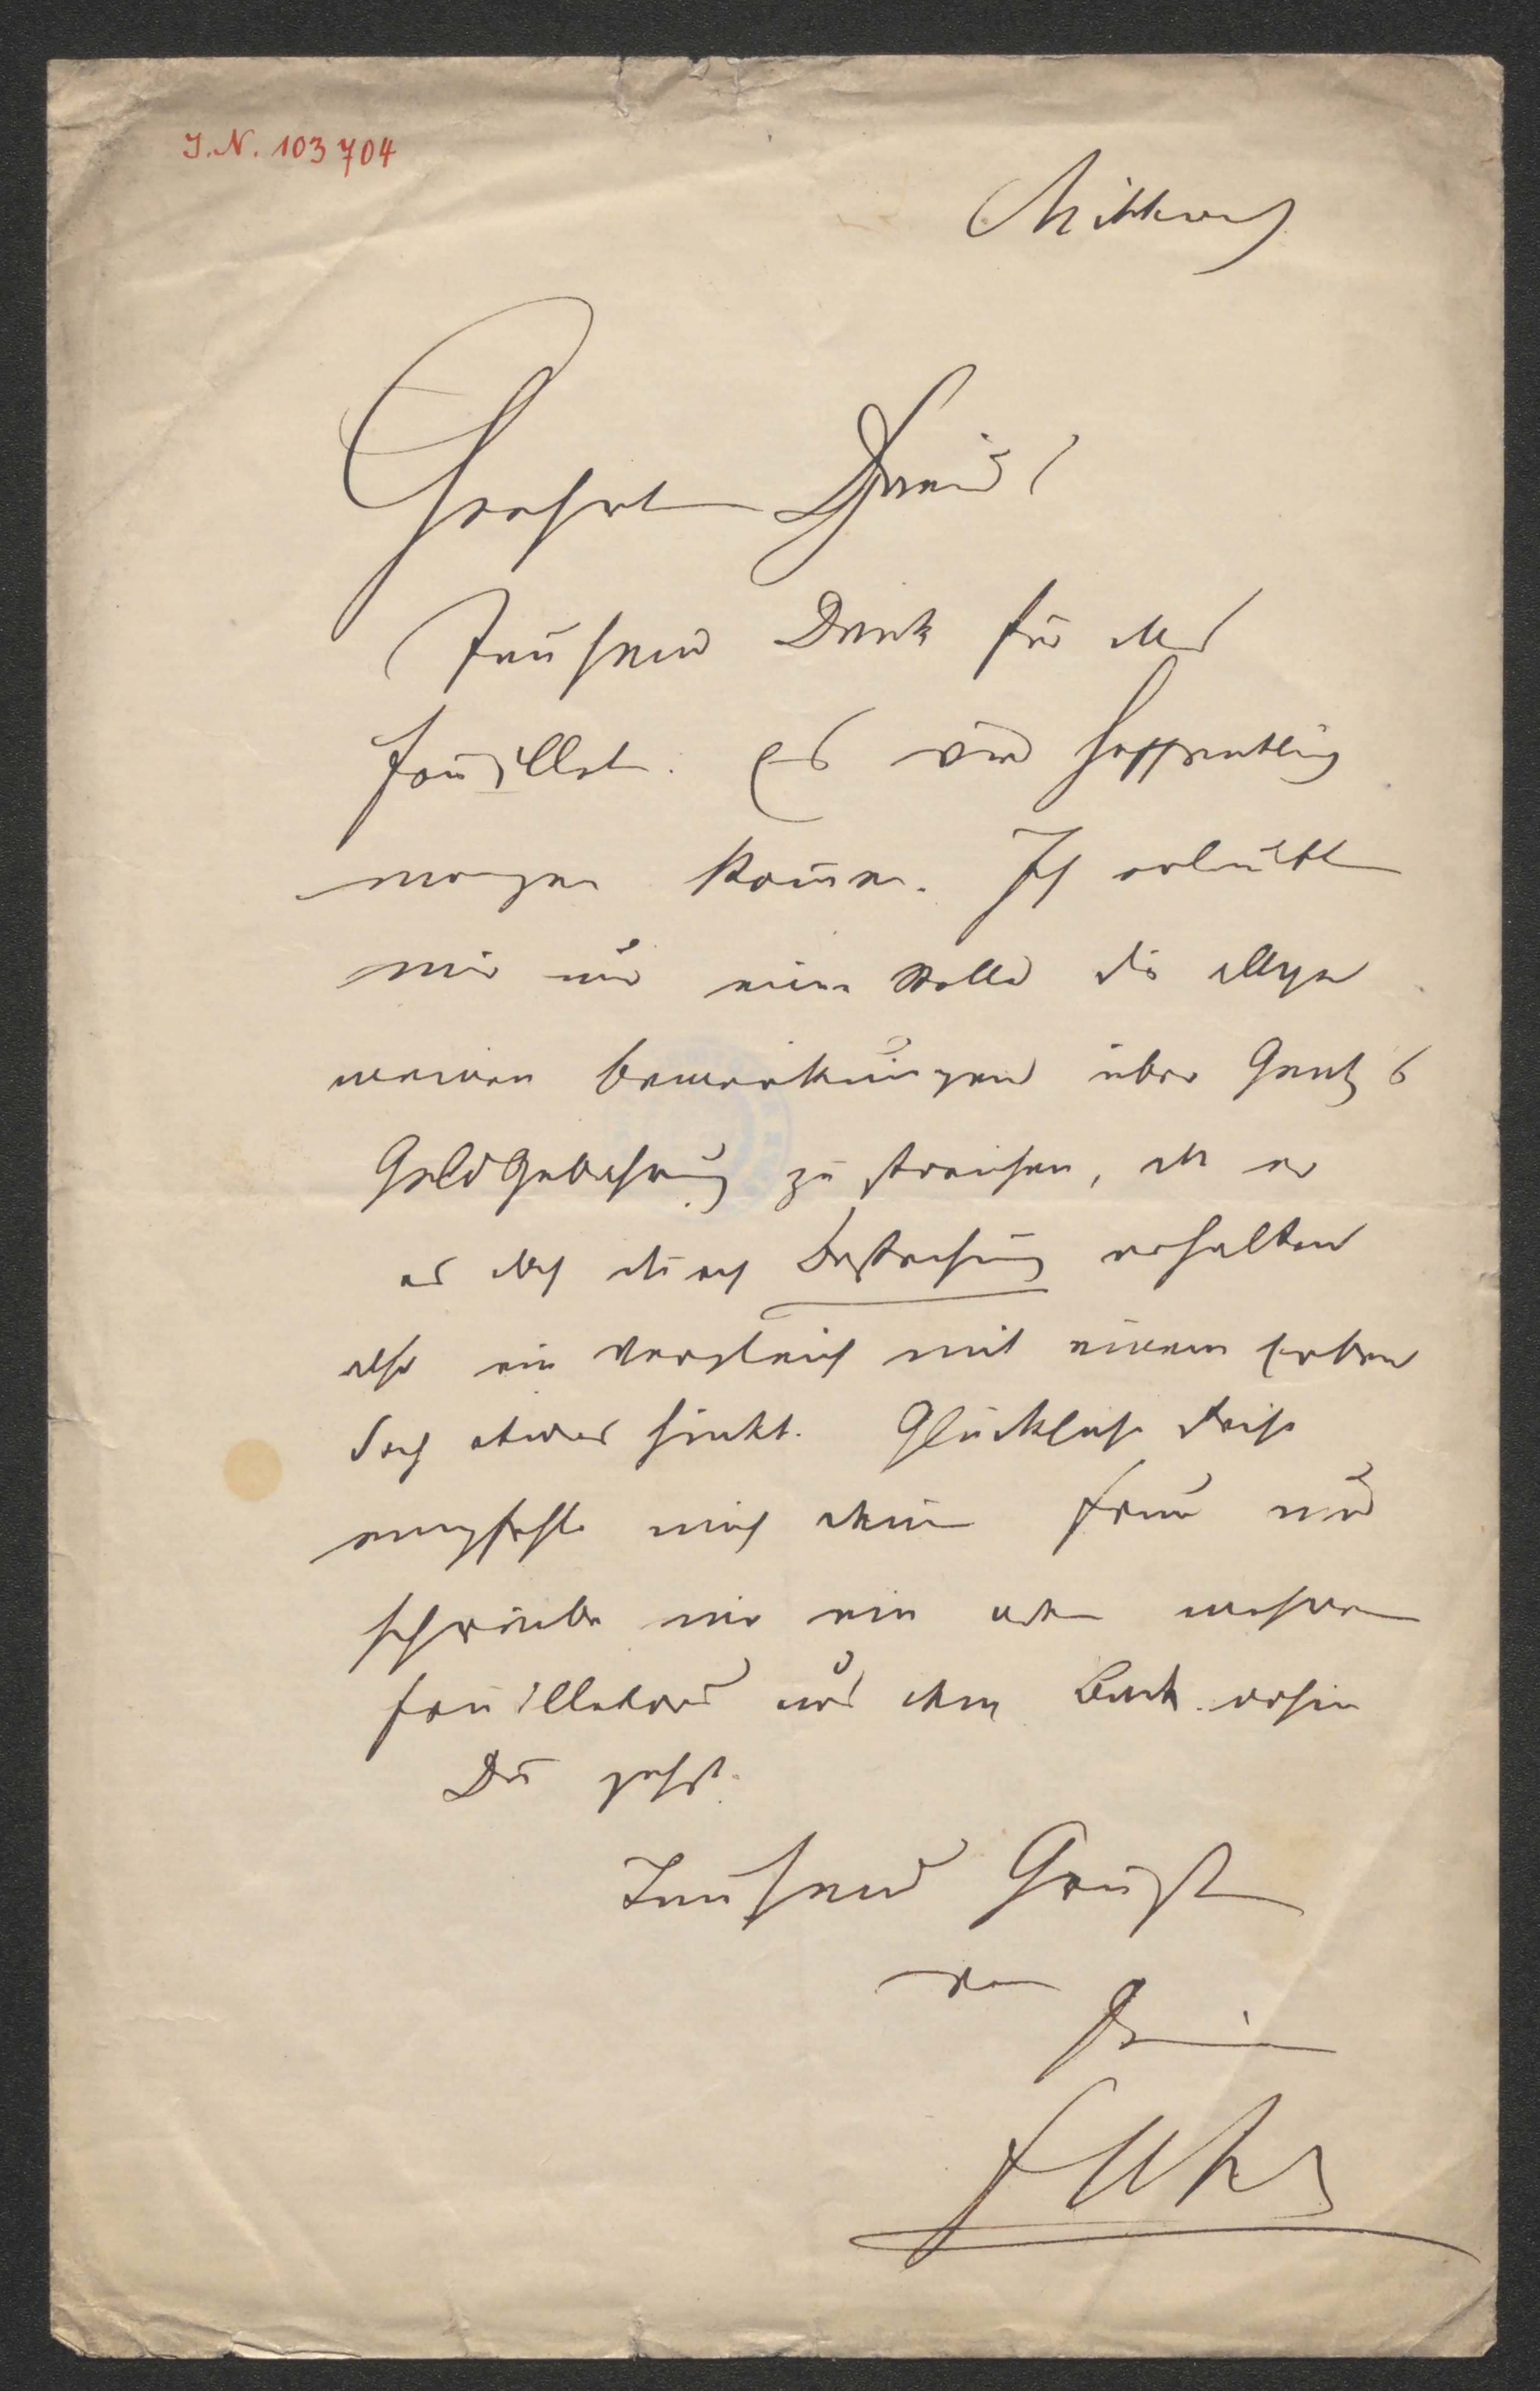 J.N. 103704
Mittwoch
Geehrter Freund!
Tausend Dank für das
Feuilleton. Es wird hoffentlich
morgen kommen. Ich erlaubte
mir nur eine Stelle die allge
meinen Bemerkungen über Gentz's
Geldgebahrung zu streichen, da er
es doch durch Bestechung erhalten
also ein Vergleich mit einem
doch etwas hinkt. Glückliche Reise
empfehle mich deiner Frau und
schreibe mir ein oder mehrere
Feuilletons aus dem wohin
Du gehst.
Tausend Grüße
von
Deinem